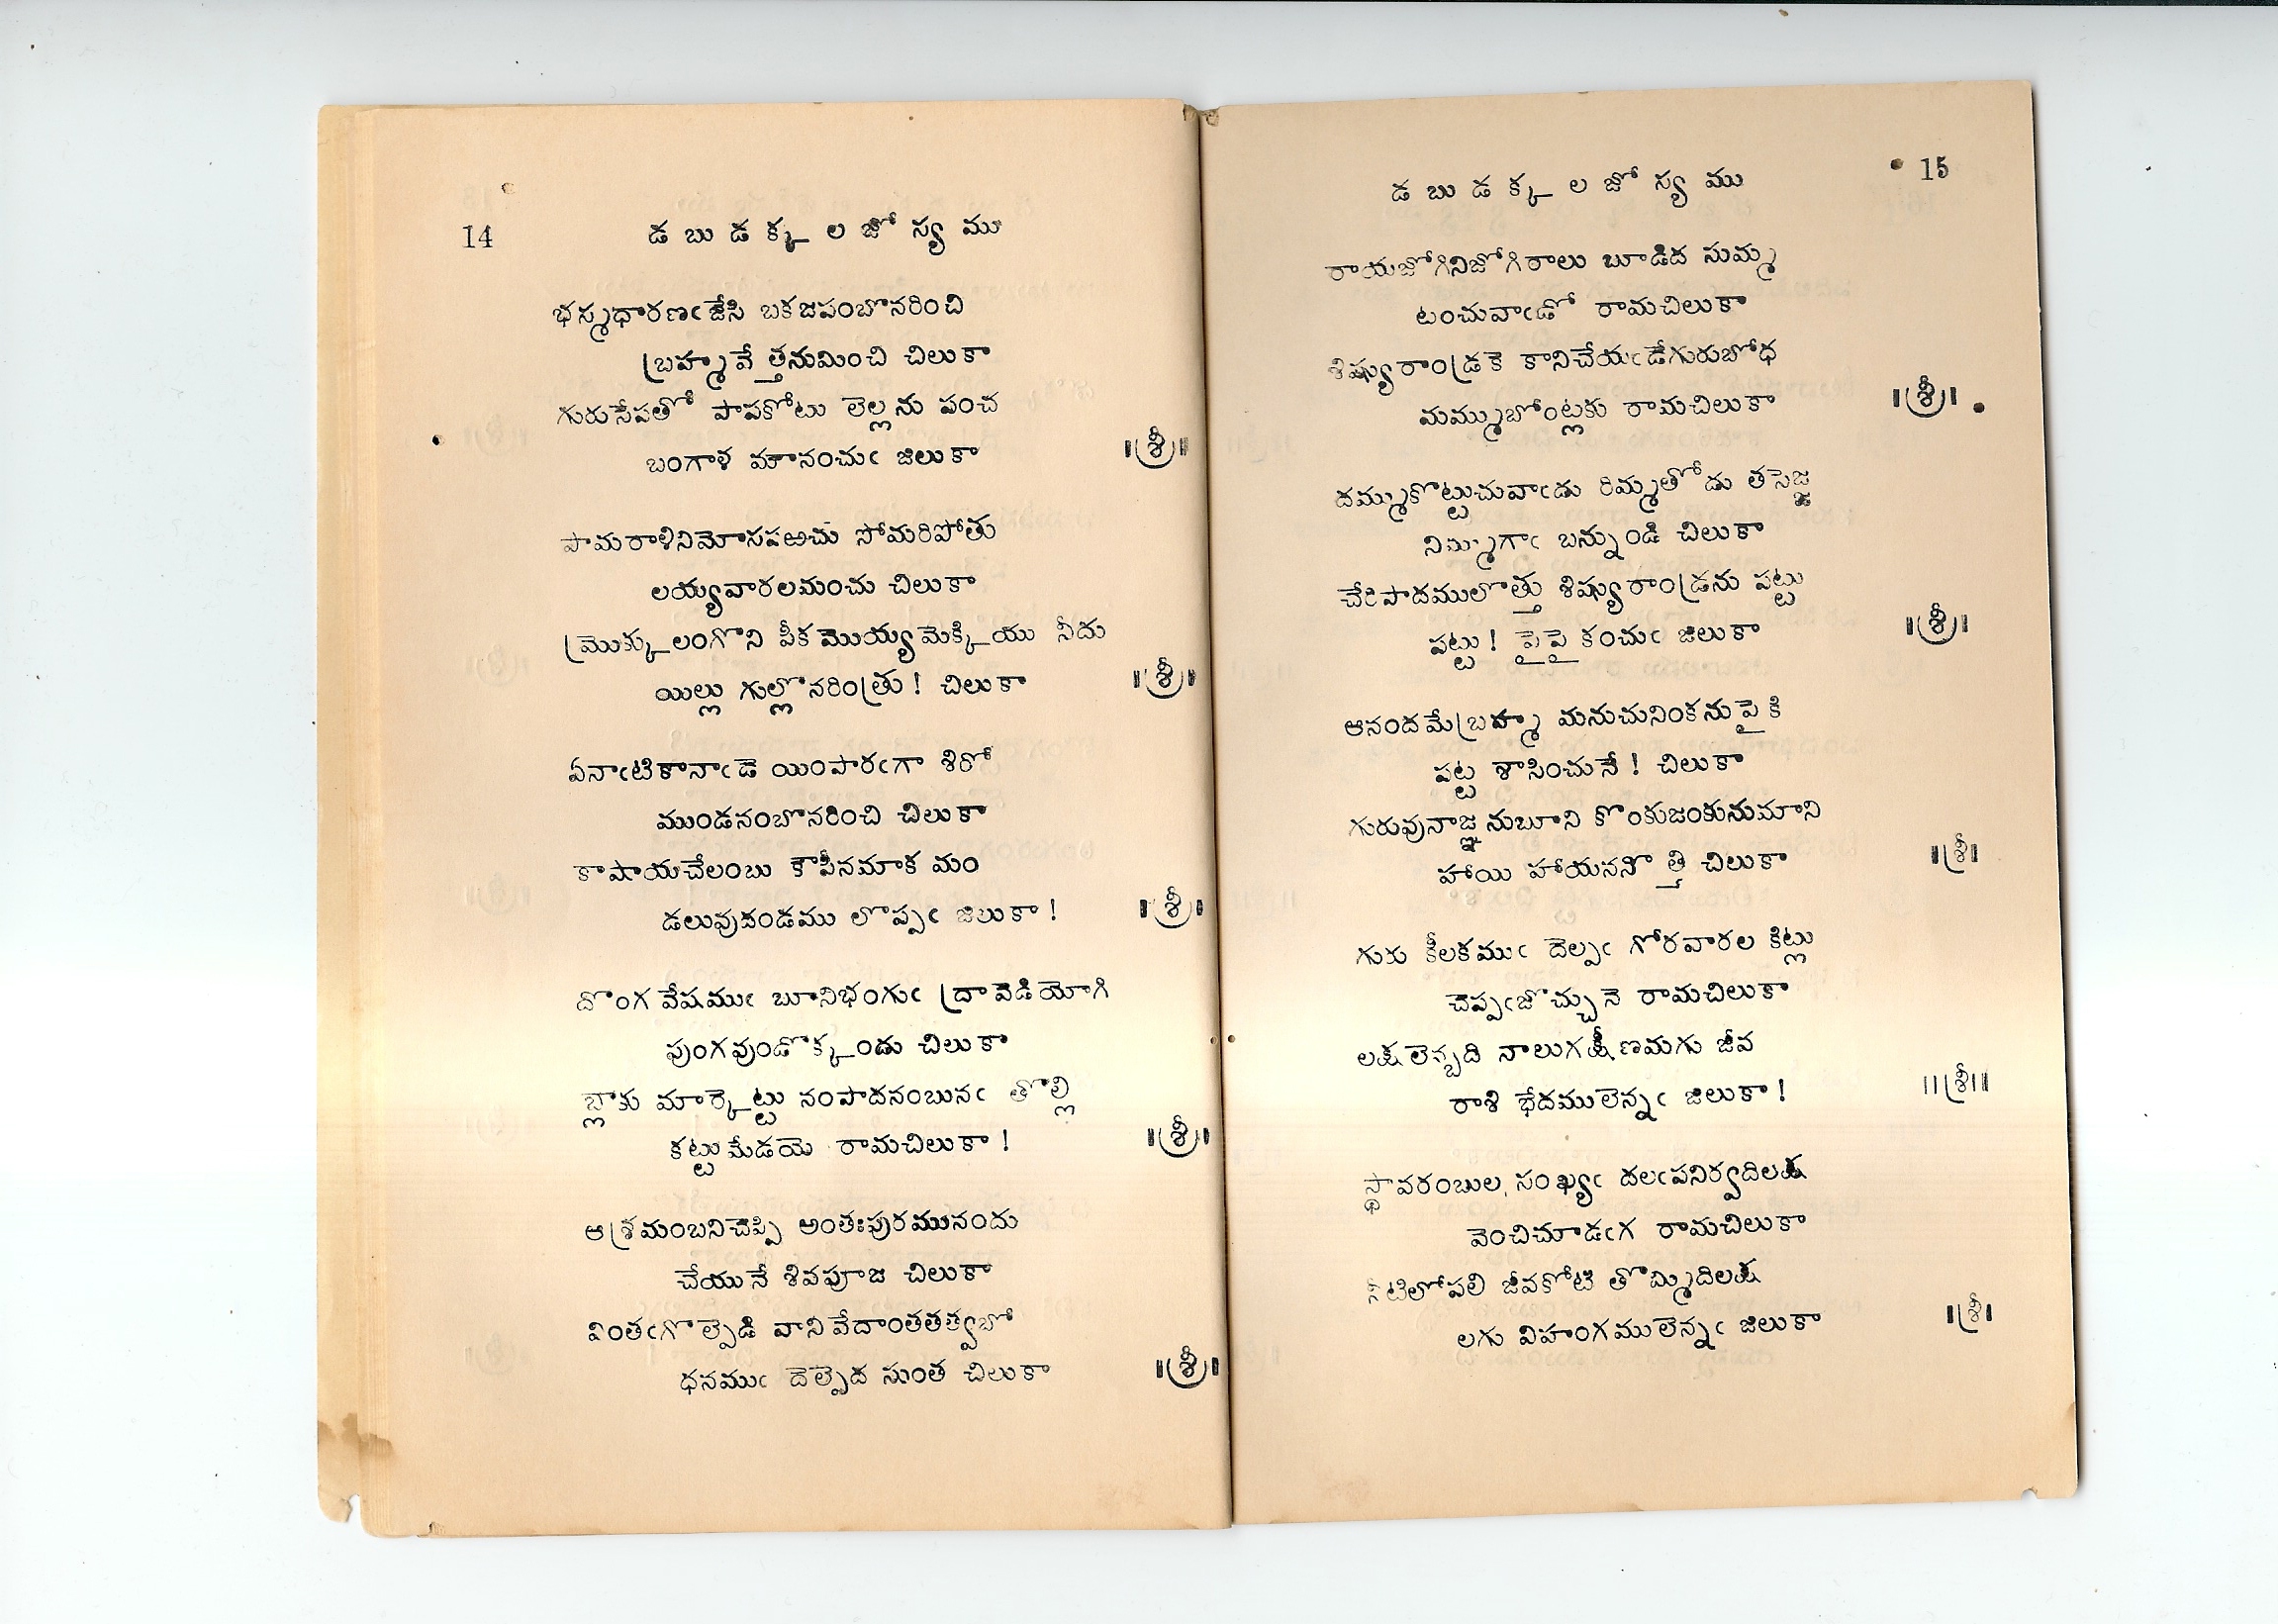 14
డ బు డ క్క ల జో స్య ము
భస్మధారణఁజేసి బకజపంబొనరించి
బ్రహ్మవే త్తనుమించి చిలుకా
గురుసేపతో పాపకోటు లెల్లను పంచ
బంగాళ మౌనంచుఁ జిలుకా ॥శ్రీ॥
పామరాళినిమోసపఱచు సోమరిపోతు
లయ్యవారలమంచు చిలుకా
మ్రొక్కులంగొని పీకమొయ్యమెక్కియు నీదు
యిల్లు గుల్లొనరింత్రు! చిలుకా ॥శ్రీ॥
ఏనాఁటికానాఁడె యింపారఁగా శిరో
ముండనంబొనరించి చిలుకా
కాషాయచేలంబు కౌపీనమాక మం
డలువుదండము లొప్పఁ జిలుకా! ॥శ్రీ॥
దొంగ వేషముఁ బూనిభంగుఁ ద్రావెడి యోగి
పుంగవుండొక్కండు చిలుకా
బ్లాకు మార్కెట్టు నంపాదనంబునఁ తొల్లి
కట్టుమేడయె రామచిలుకా! ॥శ్రీ॥
ఆశ్రమంబనిచెప్పి అంతఃపురమునందు
చేయునే శివపూజ చిలుకా
వింతఁగొల్పెడి వాని వేదాంతతత్వబో
ధనముఁ దెల్పెద సుంత చిలుకా ॥శ్రీ॥
డ బు డ క్క ల జో స్య ము
15
రాయజోగినిజోగిరాలు బూడిద సుమ్మ
టంచువాఁడో రామచిలుకా
శిష్యురాండ్రకె కానిచేయఁడేగురుబోధ
మమ్ముబోంట్లకు రామచిలుకా ॥శ్రీ॥
దమ్ముకొట్టుచువాఁడు రిమ్మతోడు తసెజ్జ
నిమ్మగాఁ బన్నుండి చిలుకా
చేరిపాదములొత్తు శిష్యురాండ్రను పట్టు
పట్టు! పైపై కంచుఁ జిలుకా ॥శ్రీ॥
ఆనందమేబ్రహ్మ మనుచునింకనుపై కి
పట్ట శాసించునే! చిలుకా
గురువునాజ్ఞనుబూని కొంకుజంకునుమాని
హాయి హాయననొ త్తి చిలుకా ॥శ్రీ॥
గురు కీలకముఁ దెల్పఁ గోరవారల కిట్లు
చెప్పఁజొచ్చునె రామచిలుకా
లక్షలెన్బది నాలుగక్షీణమగు జీవ
రాశి భేదములెన్నఁ జిలుకా! ॥శ్రీ॥
స్థావరంబుల సంఖ్యఁ దలఁపనిర్వదిలక్ష
వెంచిచూడఁగ రామచిలుకా
నీటిలోపలి జీవకోటి తొమ్మిదిలక్ష
లగు విహంగములెన్నఁ జిలుకా ॥శ్రీ॥